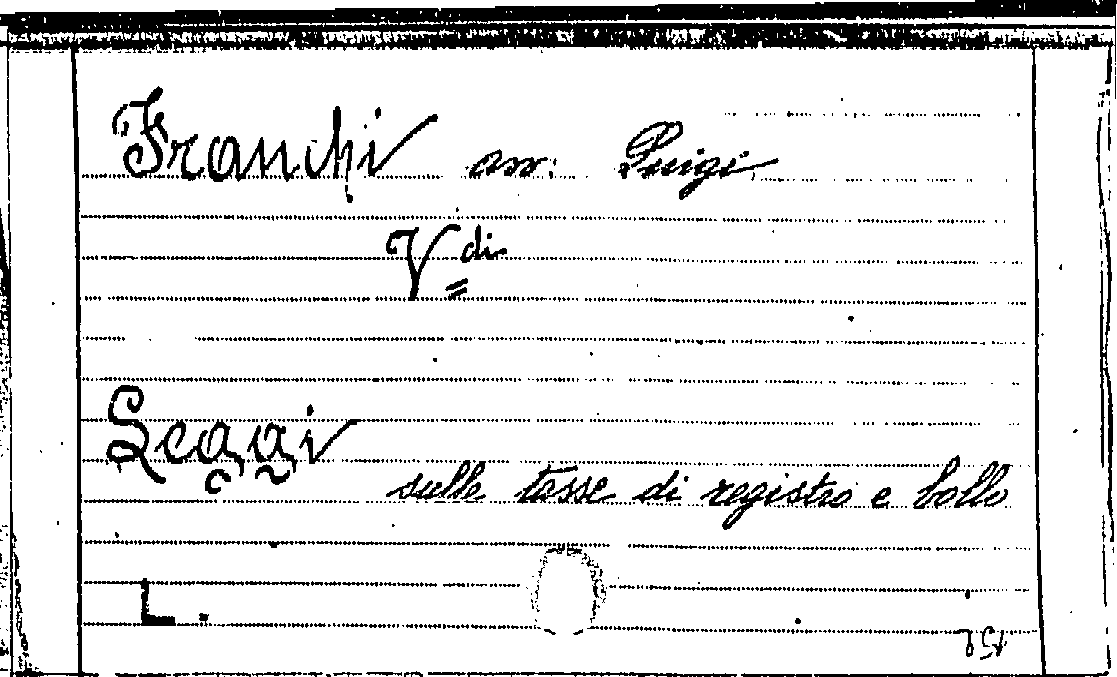 Franchi avv: Luigi
Vdi
Leggi
sulle tasse di registro e bollo
L.